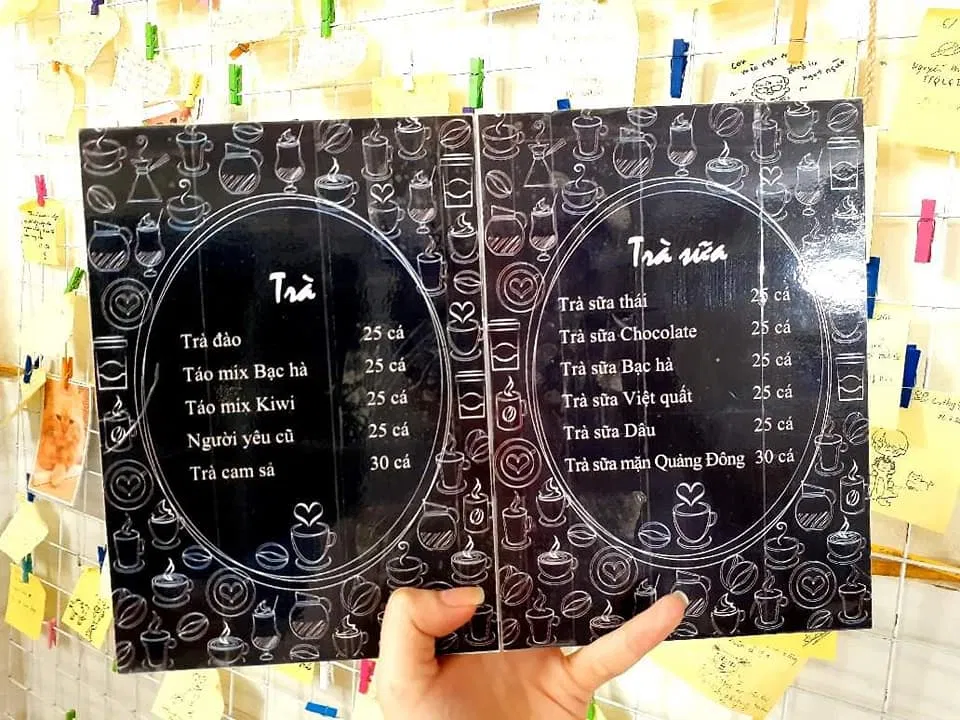 Trà
Trà đào 25 cá
Táo mix Bạc hà 25 cá
Táo mix Kiwi 25 cá
Người yêu cũ 25 cá
Trà cam sả 30 cá
Trà sữa
Trà sữa thái 25 cá
Trà sữa Chocolate 25 cá
Trà sữa Bạc hà 25 cá
Trà sữa Việt quất 25 cá
Trà sữa Dâu 25 cá
Trà sữa mặn Quảng Đông 30 cá